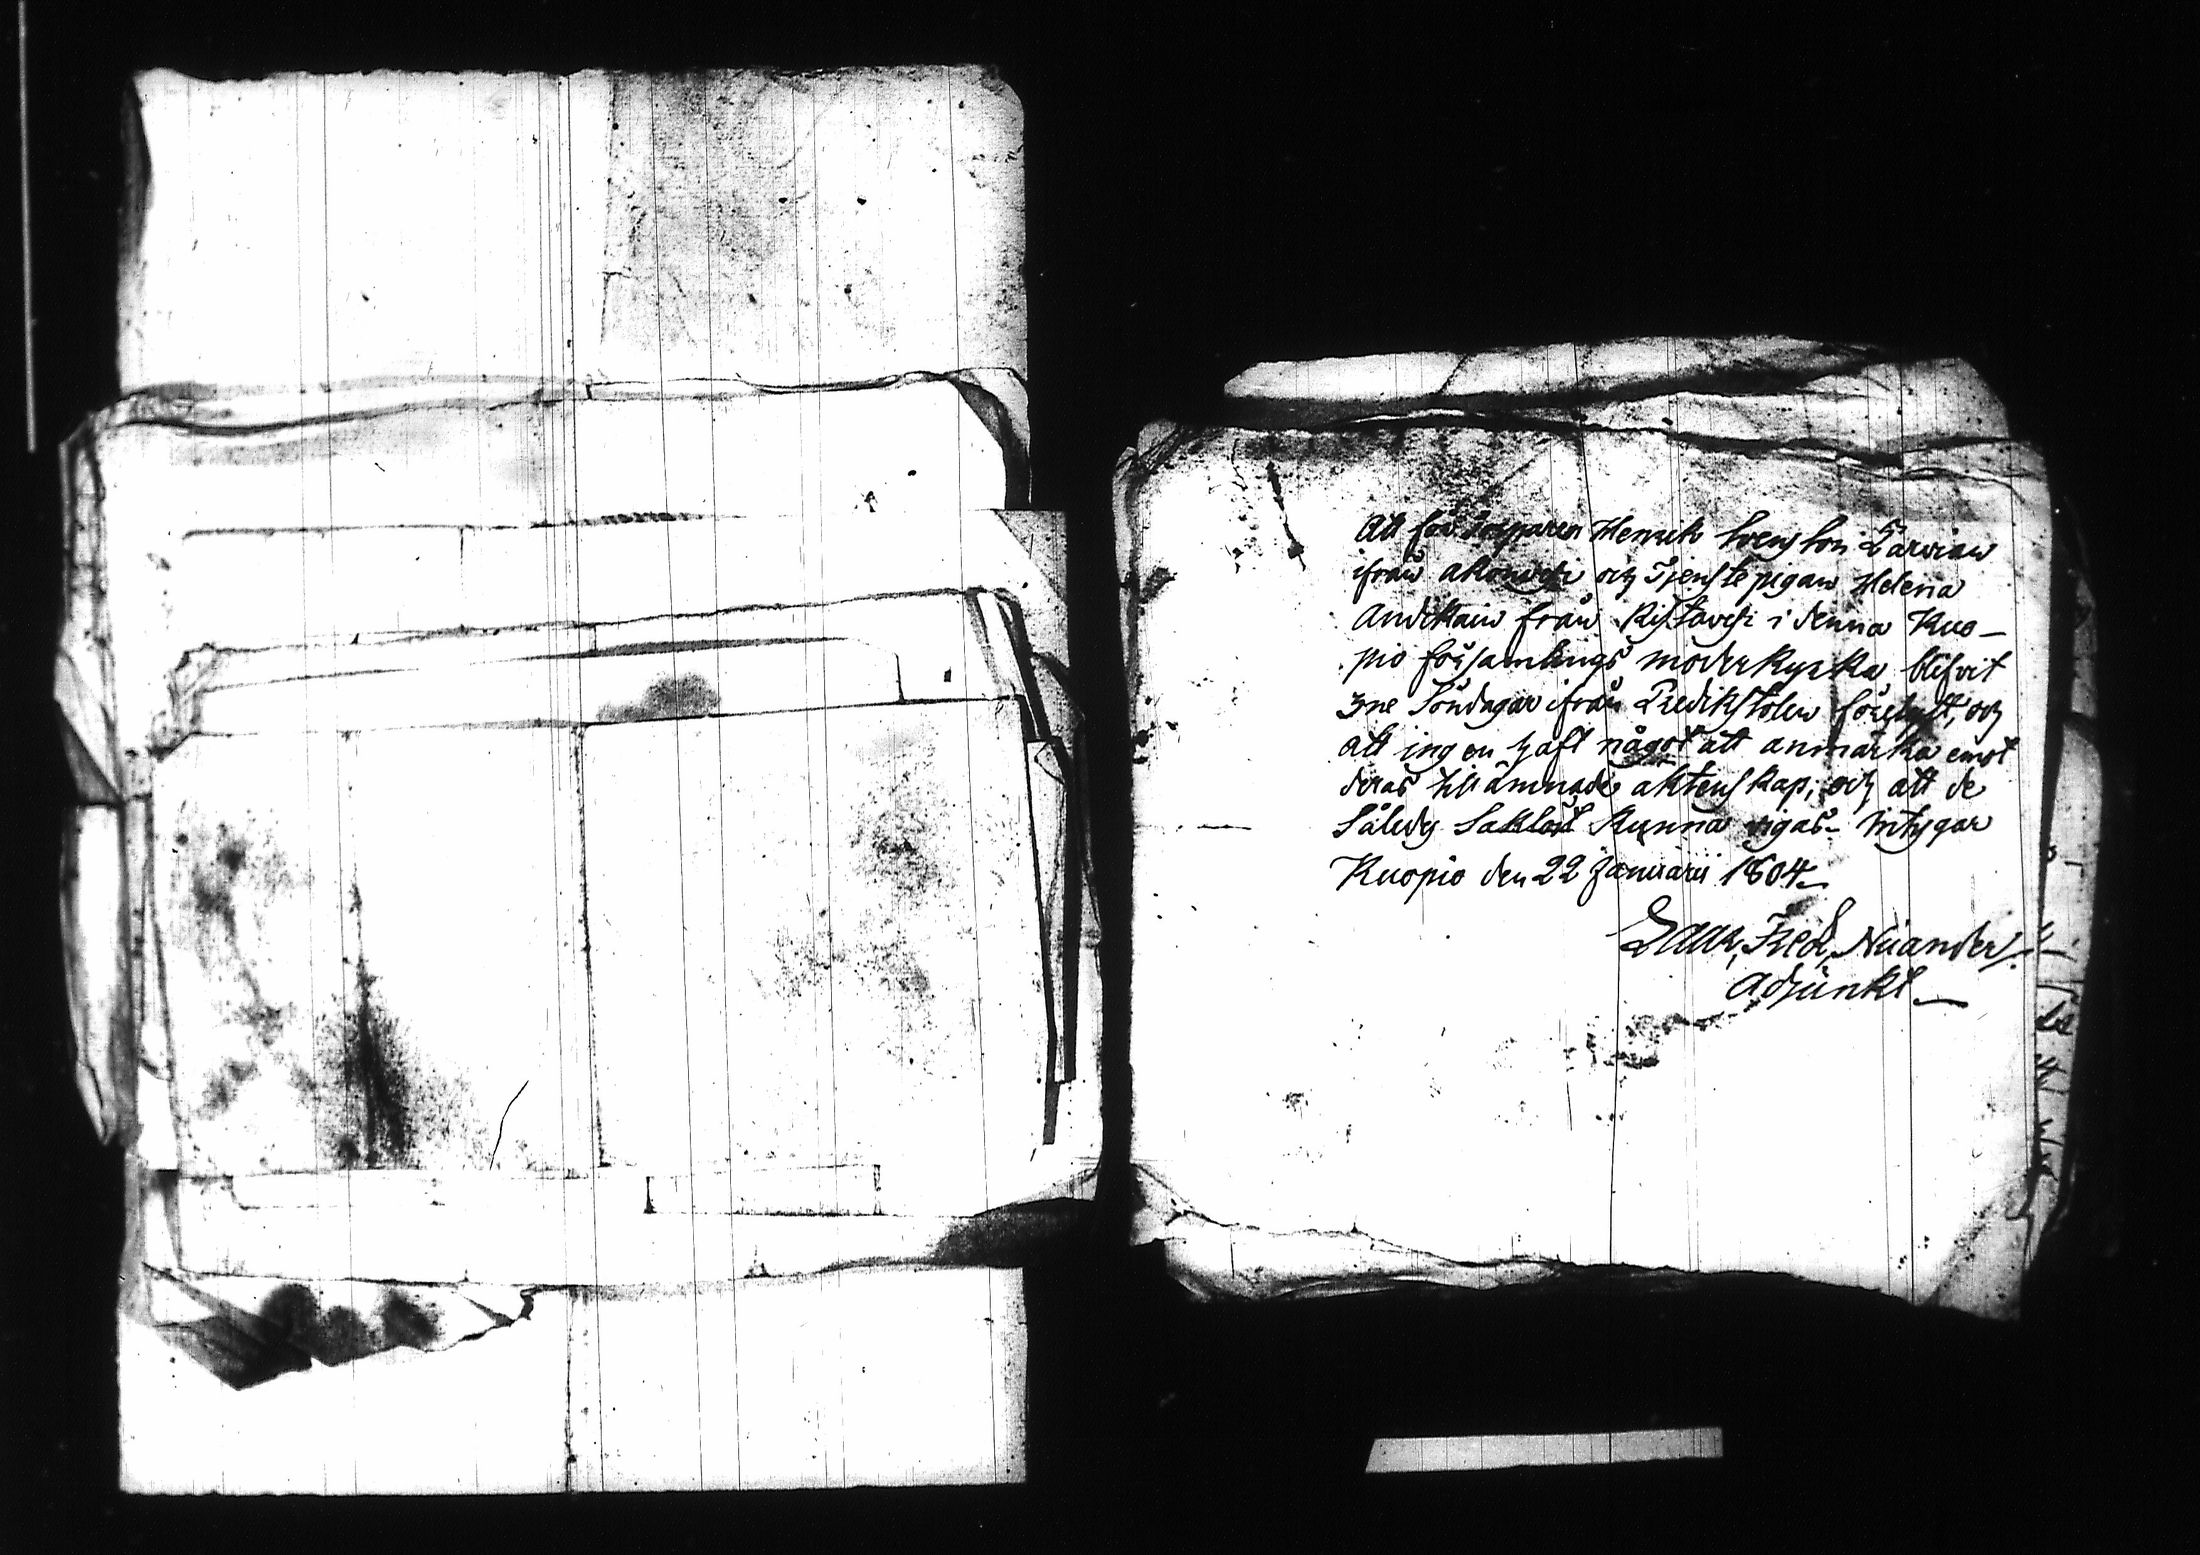 Att för Torpparen Henrik Svensson Tarviain
ifrån akonvesi och Tjenste pigan Helena
Andikain från Ristavesi i denna Kuo-
pio församlings moderkyrka blifvit
3ne Söndagar ifrån Predikstolen förelyst, och
att ingen haft något att anmärka emot
deras tillämnade aktenskap, och att de
Således Saklöst kunna vigas - intygar
Kuopio den 22 Januarii 1804
Isaac, Fred, Niiander/.
Adjunkt